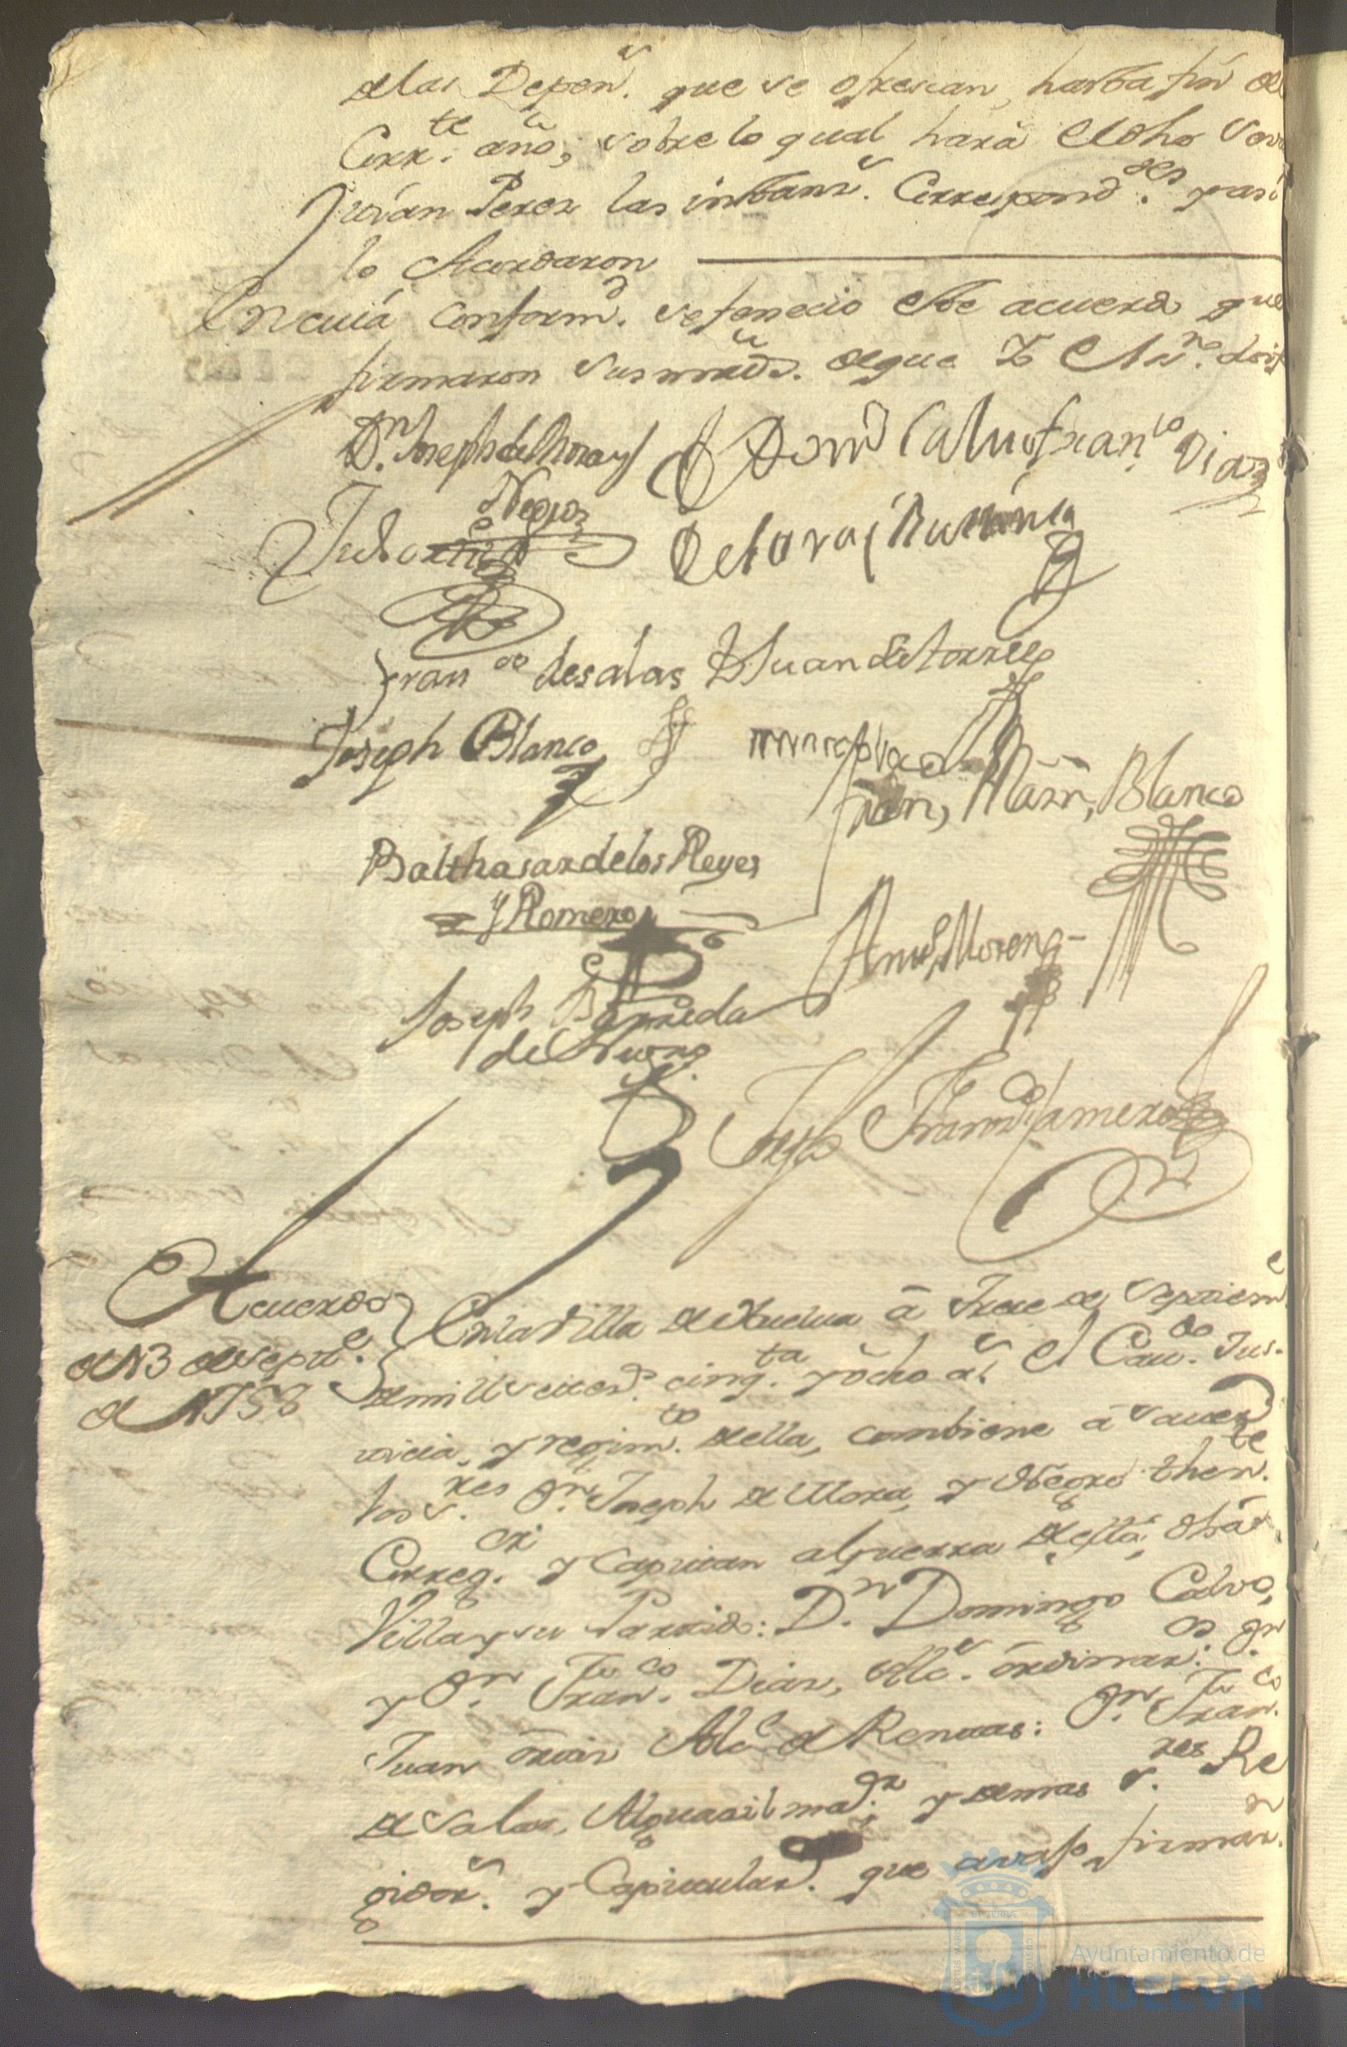 delas Depen.s que se ofrescan, hasta fin del
Corr.te año, sobre lo qual hará el dho
Julián Perez las instanz.s Correspond.tes y asi
lo Acordaron
En cuia conform.d se fenecio este acuerdo que
firmaron sus mrds. de que Yo el
D.n Joseph de Mora y
Negro
Dom.o Calvo
Fran.co Diaz
Fran.co de Salas
Juan de torres
Joseph Blanco
Fran, Marn, Blanco
Balthasar de los Reyes
y Romero
Man.l Moreno
Joseph
Acuerdo
de 13 de Sepre.
de 1758
En la Villa de Huelva á trece de Septiem.e
de mill setec.s cinq.ta y ocho a.s el Cav.do Jus-
ticia, y regim.to della, combiene á saver
los s.res D.n Joseph de Mora, y Negro then.te
Correg.or y Capitan aguerra de esta dha
Villa y su Partido: D.n Domingo Calvo,
y D.n Fran.co Diaz, Alc.s ordinarios: D.n
Juan Alc.e de Rentas: D.n Fran.co
de Salas, Alguasil ma.or y demas s.res Re
gidor.s y Capitular.s que avajo firmar.n
Ayuntamiento de
HUELVA